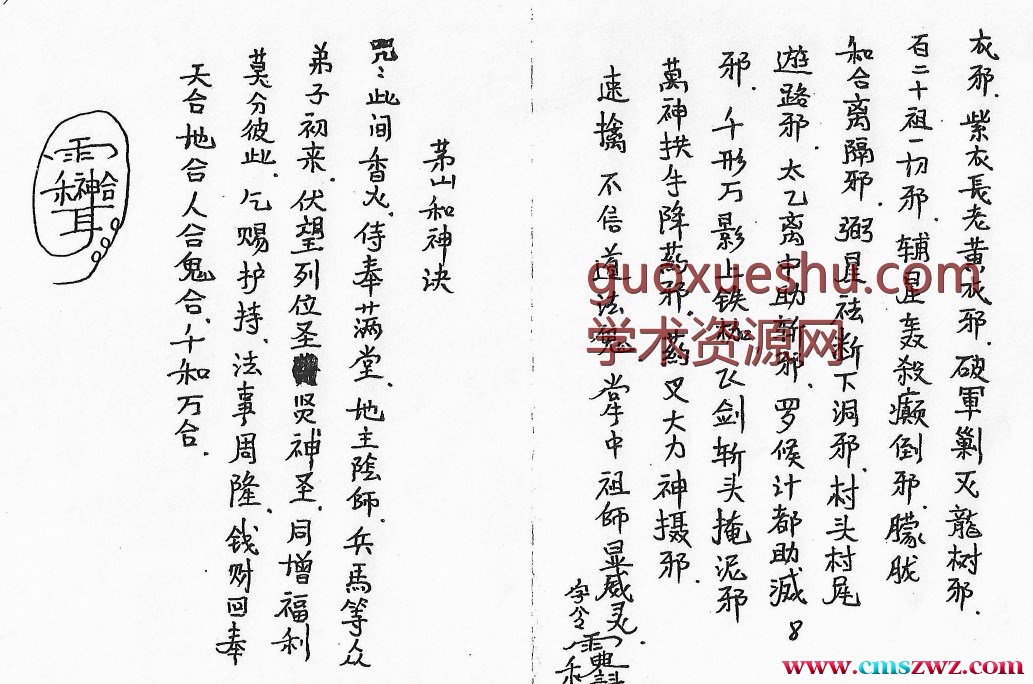 衣邪．紫衣長老黄衣邪．破軍剿灭龍树邪．
百二十祖一切邪．辅星轰殺癫倒邪．朦胧
和合离隔邪．弼星祛断下洞邪．村头村尾
遊路邪．太乙离中助斩邪．罗候计都助滅
邪．千形万影山铁枷飞剑斩头掩泥邪
萬神拱手降葯邪．葯叉大力神摄邪．
速擒不信道法 掌中祖師显威灵．
字令
8
茅山和神诀
咒：此间香火．侍奉满堂．地主陰師．兵馬等众
弟子初来．伏望列位圣贤神圣．同增福利
莫分彼此．乞赐护持．法事周隆．钱财回奉
天合地合人合鬼合．千和万合．
guoxueshu.com
学术资源网
www.cmszwz.com